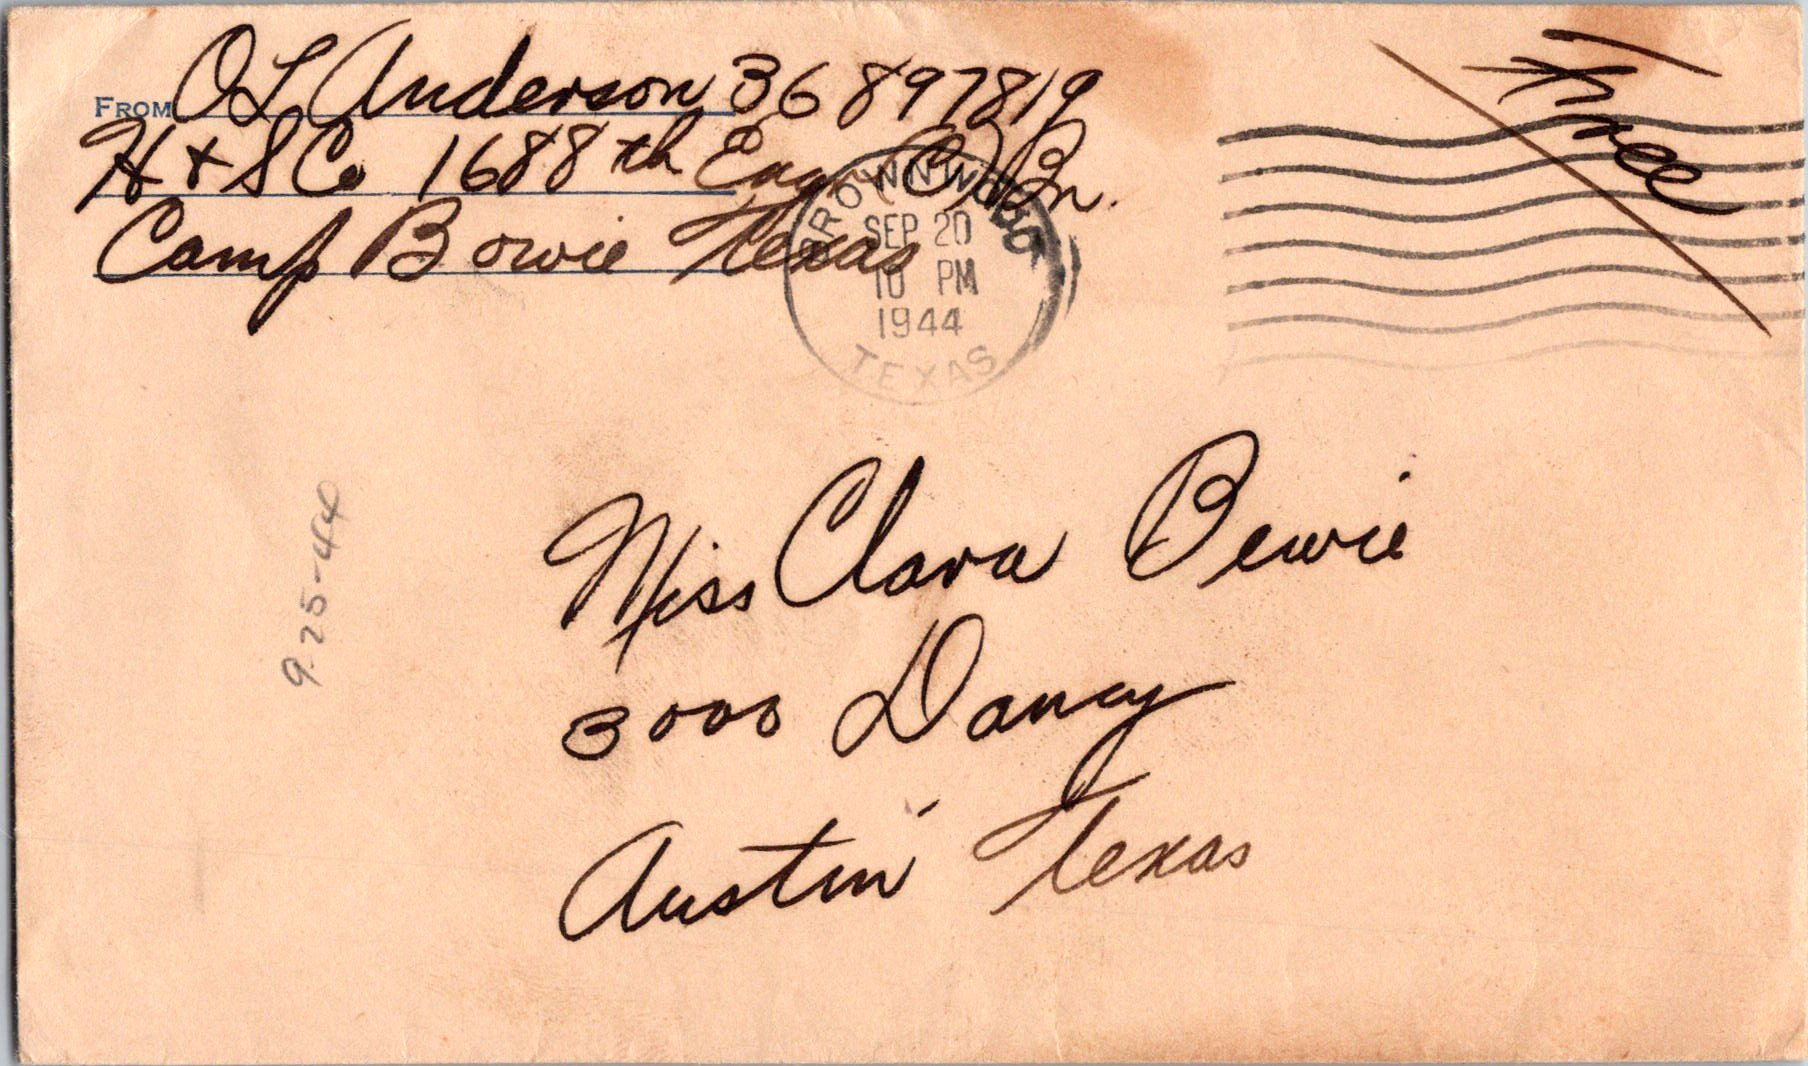 FROM O L Anderson 36897819
H + S Co 1688th Engr (C) Bn.
Camp Bowie Texas
BROWNWOOD
SEP 20
10 PM
1944
TEXAS
Free
9-25-44
Miss Clara Bewie
3000 Dancy
Austin Texas